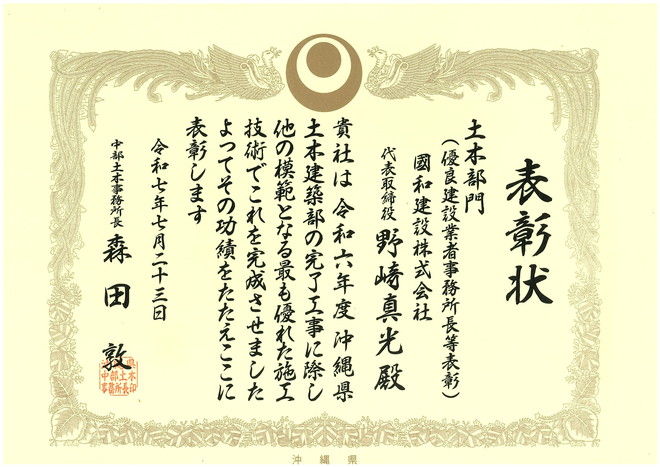 表彰状
土木部門
(優良建設業者事務所長等表彰)
國和建設株式会社
代表取締役 野﨑真光殿
貴社は令和六年度沖縄県
土木建築部の完了工事に際し
他の模範となる最も優れた施工
技術でこれを完成させました
よってその功績をたたえここに
表彰します
令和七年七月二十三日
中部土木事務所長 森田 敦
沖縄県
中部土木
事務所長印
沖縄県